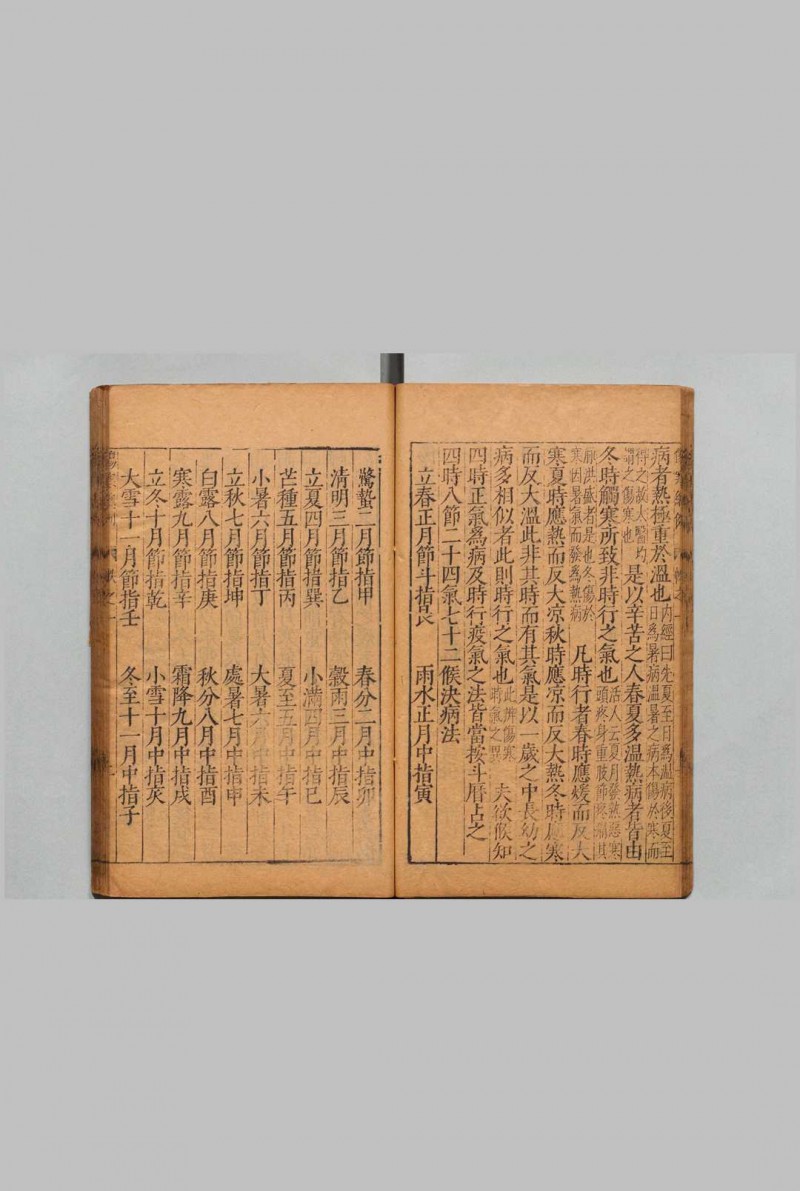 病者熱極重於溫也內經曰先夏至日爲溫病後夏至日爲暑病溫暑之病本傷於寒而
得之故太醫均謂之傷寒也是以辛苦之人春夏多溫熱病者皆由
冬時觸寒所致非時行之氣也活人云夏月發熱惡寒頭疼身重肢節疼痛其
脉洪盛者是也冬傷於寒因暑氣而發爲熱病凡時行者春時應煖而反大
寒夏時應熱而反大凉秋時應凉而反大熱冬時應寒
而反大溫此非其時而有其氣是以一歲之中長幼之
病多相似者此則時行之氣也此辨傷寒時氣之異夫欲候知
四時正氣爲病及時行疫氣之法皆當按斗曆占之
四時八節二十四氣七十二候決病法
立春正月節斗指艮 雨水正月中指寅
驚蟄二月節指甲 春分二月中指卯
清明三月節指乙 穀雨三月中指辰
立夏四月節指巽 小滿四月中指巳
芒種五月節指丙 夏至五月中指午
小暑六月節指丁 大暑六月中指未
立秋七月節指坤 處暑七月中指申
白露八月節指庚 秋分八月中指酉
寒露九月節指辛 霜降九月中指戌
立冬十月節指乾 小雪十月中指亥
大雪十一月節指壬 冬至十一月中指子